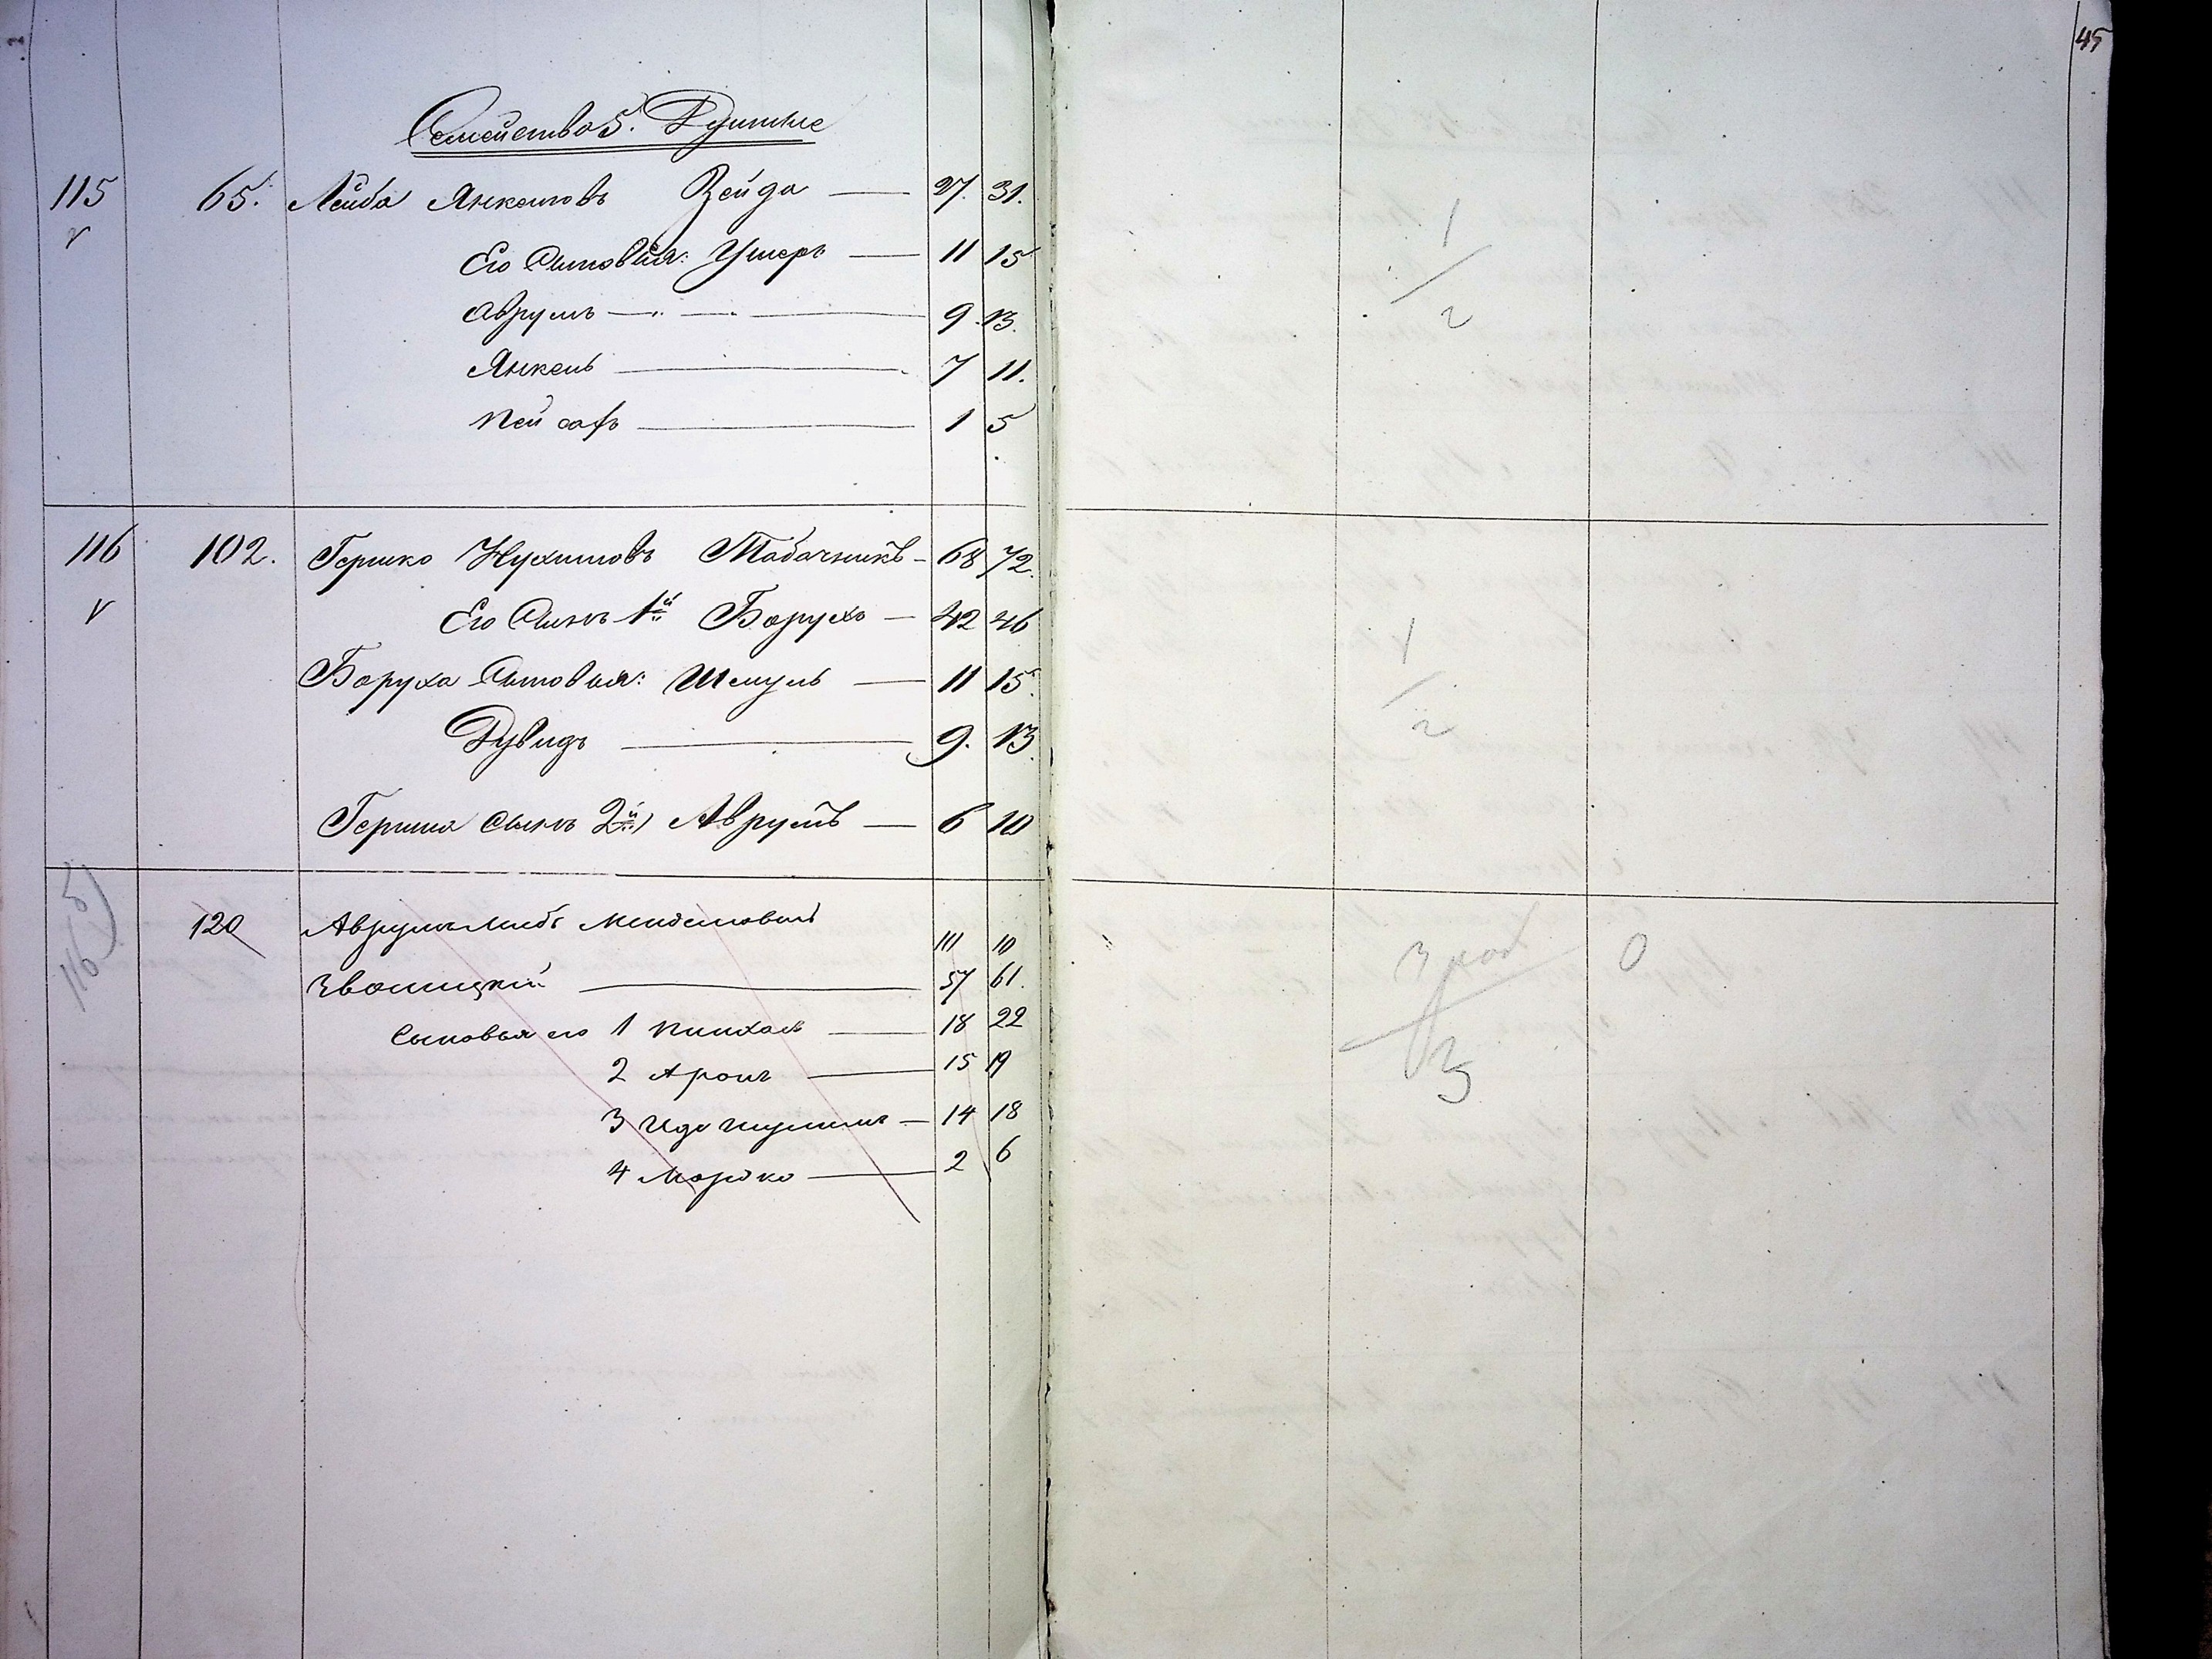 45
Семейства 5. Душные
115 65. Лейба Янкелювъ Зейда — 27. 31.
Его Сыновья: Ушеръ — 11 15
Аврумъ — 9 13.
Янкель — 7 11.
Пейсахъ — 1 5
1
2
116 102. Гершко Нухимовъ Табачникъ — 68 72.
Его Сынъ 1й Борухъ — 42 46
Боруха Сыновья: Шмуль — 11 15.
Дувидъ — 9. 13.
Герша сынъ 2й Аврумъ — 6 10
1
2
116 (5)
120 Аврумъ Лейбъ Менделовъ
111 10
Зволицкій — 57 61.
Сыновья его 1 Пинхасъ — 18 22
2 Аронъ — 15 19
3 — 14 18
4 Мордко — 2 6
3
0
3